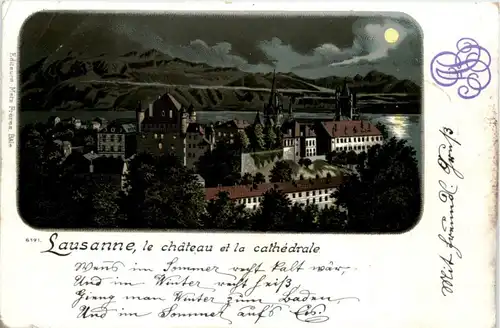 Editeurs Metz Frères, Bâle
6191.
Lausanne, le château et la cathédrale
Wenns im Sommer recht kalt wär,
Und im Winter recht heiß
Gieng man Winter zum Baden,
Und im Sommer aufs Eis.
Mit freundl Gruß